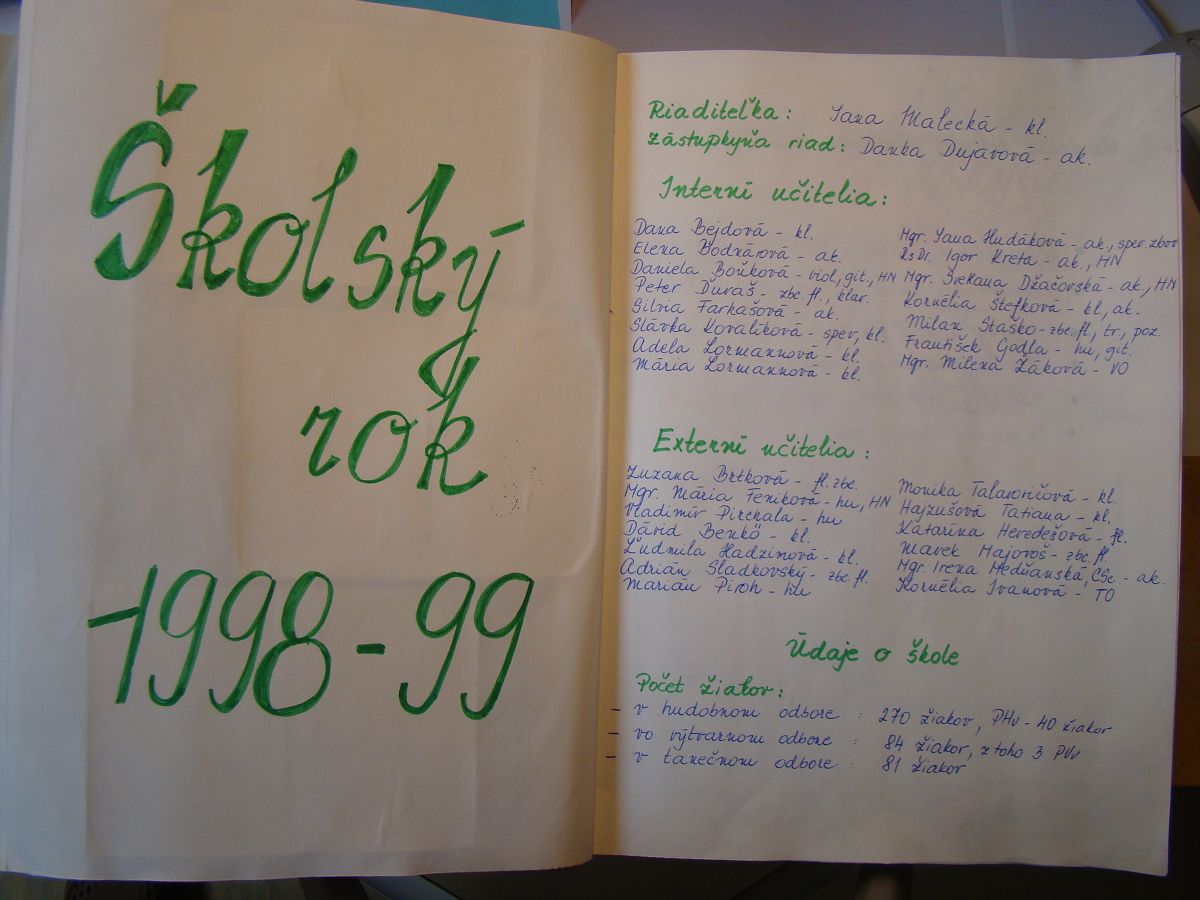 Školský
rok
1998-99
Riaditeľka: Jana Malecká - kl.
Zástupkyňa riad: Danka Dujavová - ak.
Interní učitelia:
Dana Bejdová - kl.
Elena Bodnárová - ak.
Daniela Boňková - viol, git, HN
Peter Ďuraš - zbc. fl., klar.
Silvia Farkašová - ak.
Slávka Kovalíková - spev, kl.
Adela Lormannová - kl.
Mária Lormannová - kl.
Mgr. Jana Hudáková - ak., spev. zbor
RsDr. Igor Kreta - ak., HN
Mgr. Svetlana Džačovská - ak., HN
Kornélia Štefková - kl, ak.
Milan Staško - zbc. fl, tr, poz.
František Godla - hu, git.
Mgr. Milena Žáková - VO
Externí učitelia:
Zuzana Brtková - fl. zbc.
Mgr. Mária Feniková - hu, HN
Vladimír Pirchala - hu
Dávid Benkö - kl.
Ľudmila Hadzimová - kl.
Adrián Sladkovský - zbc fl.
Marián Piroh - hu
Monika Talarovičová - kl.
Hajzušová Tatiana - kl.
Katarína Heredešová - fl.
Marek Majoroš - zbc fl.
Mgr. Irena Medňanská, CSc. - ak.
Kornélia Ivanová - TO
Údaje o škole
Počet žiakov:
- v hudobnom odbore : 270 žiakov, PHv - 40 žiakov
- vo výtvarnom odbore : 84 žiakov, z toho 3 PVv
- v tanečnom odbore : 81 žiakov